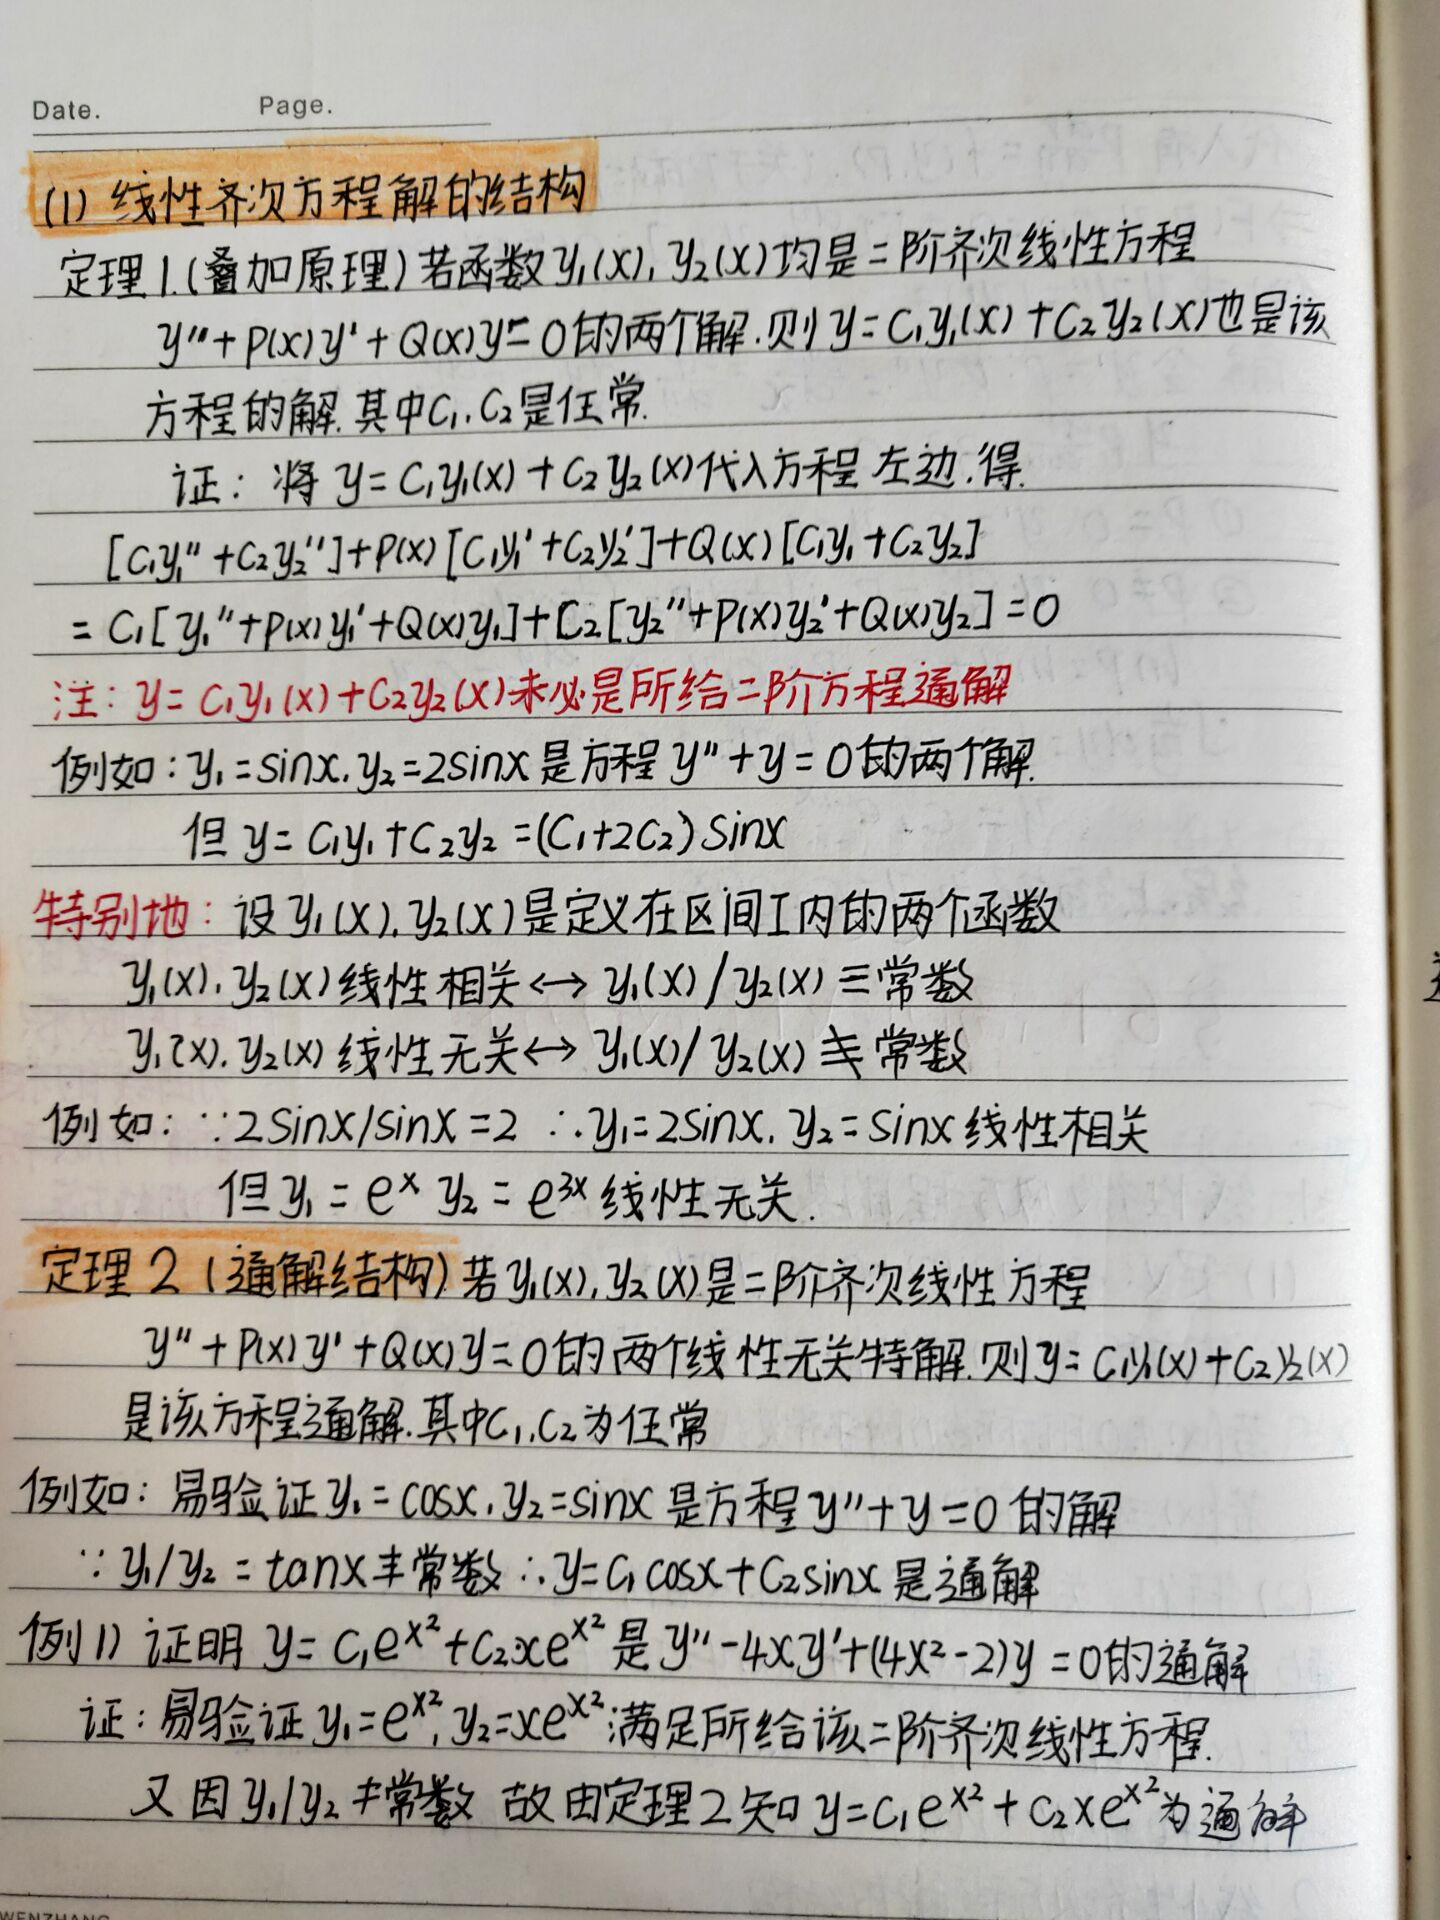 Date. Page.
(1) 线性齐次方程解的结构
定理1.(叠加原理)若函数y₁(x), y₂(x)均是二阶齐次线性方程
y''+P(x)y'+Q(x)y=0的两个解.则y=C₁y₁(x)+C₂y₂(x)也是该
方程的解.其中C₁,C₂是任常.
证：将y=C₁y₁(x)+C₂y₂(x)代入方程左边,得.
[C₁y₁''+C₂y₂'']+P(x)[C₁y₁'+C₂y₂']+Q(x)[C₁y₁+C₂y₂]
=C₁[y₁''+P(x)y₁'+Q(x)y₁]+[C₂[y₂''+P(x)y₂'+Q(x)y₂]=0
注：y=C₁y₁(x)+C₂y₂(x)未必是所给二阶方程通解
例如：y₁=sinx.y₂=2sinx是方程y''+y=0的两个解.
但y=C₁y₁+C₂y₂=(C₁+2C₂)sinx
特别地：设y₁(x).y₂(x)是定义在区间I内的两个函数
y₁(x).y₂(x)线性相关↔y₁(x)/y₂(x)≡常数
y₁(x).y₂(x)线性无关↔y₁(x)/y₂(x)≢常数
例如：∵2sinx/sinx=2 ∴y₁=2sinx.y₂=sinx线性相关
但y₁=eˣ y₂=e³ˣ线性无关.
定理2(通解结构)若y₁(x),y₂(x)是二阶齐次线性方程
y''+P(x)y'+Q(x)y=0的两个线性无关特解.则y=C₁y₁(x)+C₂y₂(x)
是该方程通解.其中C₁,C₂为任常
例如：易验证y₁=cosx.y₂=sinx是方程y''+y=0的解
∵y₁/y₂=tanx≢常数∴y=C₁cosx+C₂sinx是通解
例1) 证明y=C₁e^x²+C₂xe^x²是y''-4xy'+(4x²-2)y=0的通解
证：易验证y₁=e^x²,y₂=xe^x²满足所给该二阶齐次线性方程.
又因y₁/y₂≢常数 故由定理2知y=C₁e^x²+C₂xe^x²为通解
WENZHANG